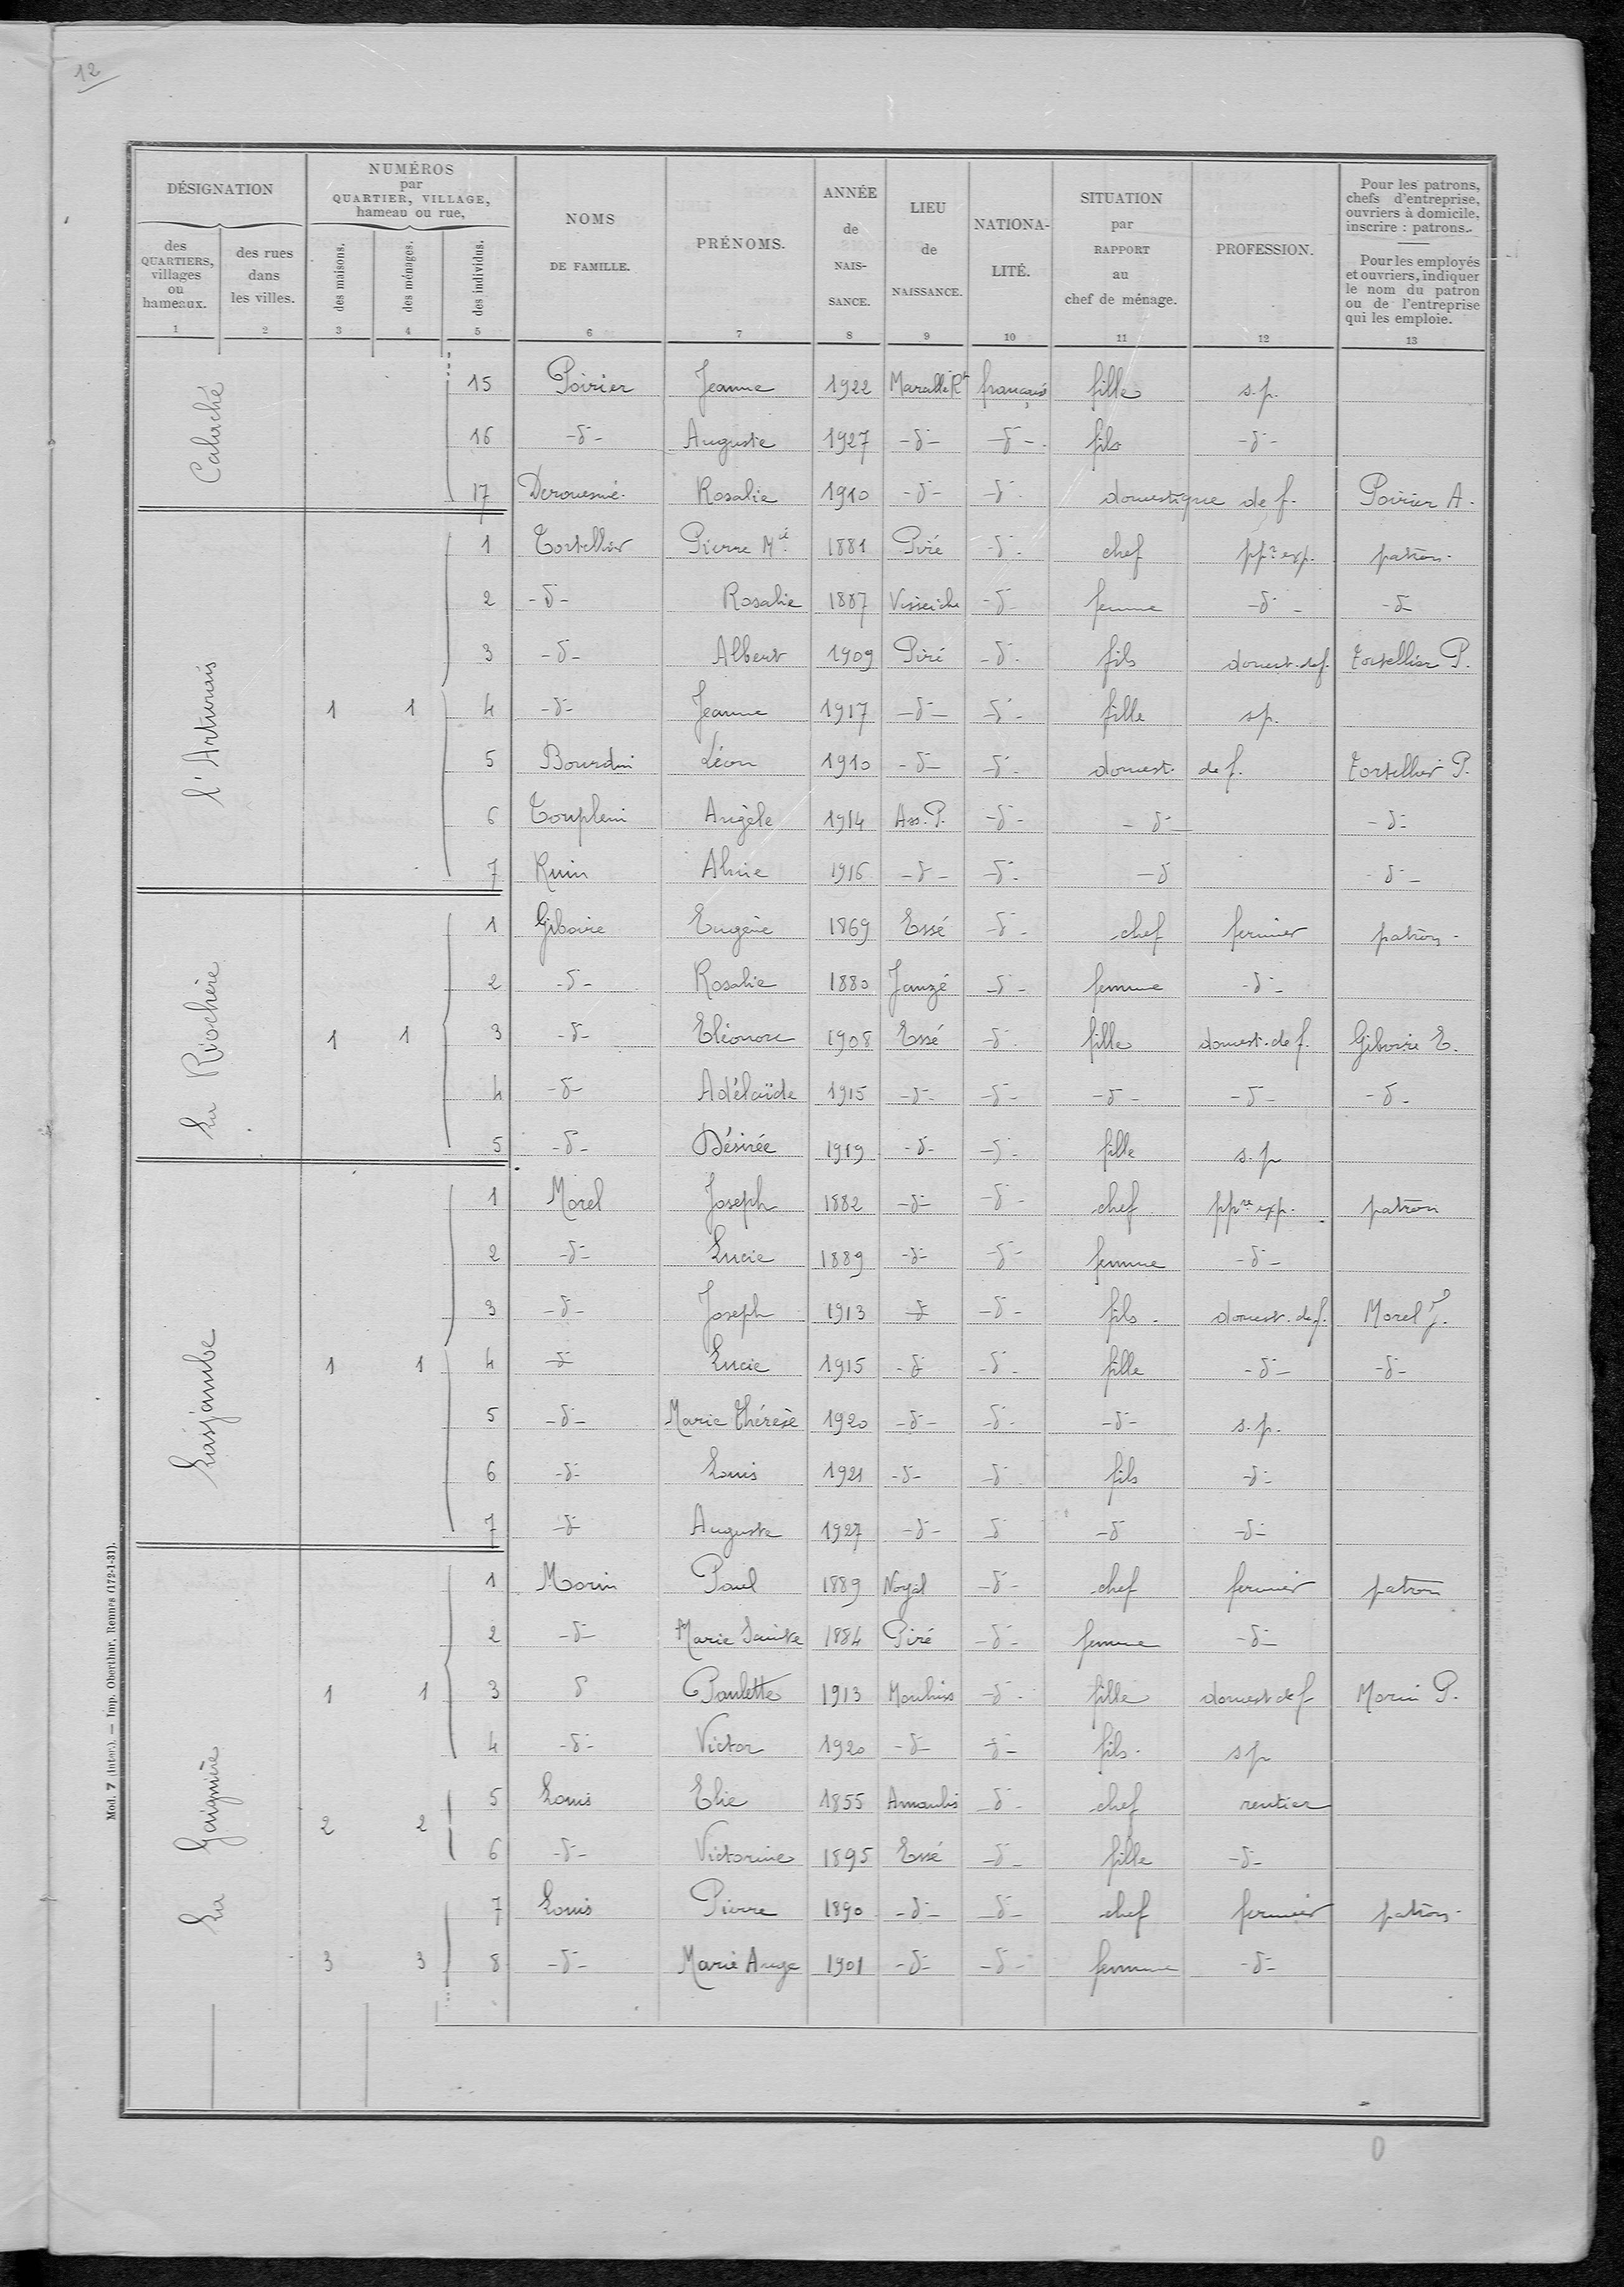 12
DÉSIGNATION
NUMÉROS
par
QUARTIER, VILLAGE,
hameau ou rue,
NOMS
DE FAMILLE.
PRÉNOMS.
ANNÉE
de
NAIS-
SANCE.
LIEU
de
NAISSANCE.
NATIONA-
LITÉ.
SITUATION
par
RAPPORT
au
chef de ménage.
PROFESSION.
Pour les patrons,
chefs d'entreprise,
ouvriers à domicile,
inscrire : patrons.
Pour les employés
et ouvriers, indiquer
le nom du patron
ou de l'entreprise
qui les emploie.
des
QUARTIERS,
villages
ou
hameaux.
des rues
dans
les villes.
des maisons.
des ménages.
des individus.
1 2 3 4 5 6 7 8 9 10 11 12 13
15 Poirier Jeanne 1922 française fille s.p.
16 -d- Auguste 1927 -d- -d- fils -d-
17 Rosalie 1910 -d- -d- domestique de f. Poirier A.
l'Artuais
1 Tortellier Pierre Mie 1881 Piré -d- chef ppre exp. patron
2 -d- Rosalie 1887 Visseiche -d- femme -d- -d-
3 -d- Albert 1909 Piré -d- fils domest. de f. Tortellier P.
1 1 4 -d- Jeanne 1917 -d- -d- fille sp.
5 Bourdin Léon 1910 -d- -d- domest. de f. Tortellier P.
6 Touplein Angèle 1914 Ass. P. -d- -d- -d-
7 1916 -d- -d- -d -d-
La Riochère
1 Giboire Eugène 1869 Essé -d- chef fermier patron
2 -d- Rosalie 1880 Janzé -d- femme -d-
1 1 3 -d- Eléonore 1908 Essé -d- fille domest. de f. Giboire E.
4 -d- Adélaïde 1915 -d- -d- -d- -d- -d-
5 -d- Désirée 1919 -d- -d- fille s.p
Lasjambe
1 Morel Joseph 1882 -d- -d- chef ppre exp. patron
2 -d- Lucie 1889 -d- -d- femme -d-
3 -d- Joseph 1913 -d- -d- fils domest. de f. Morel J.
1 1 4 -d- Lucie 1915 -d- -d- fille -d- -d-
5 -d- Marie Thérèse 1920 -d- -d- -d- s.p.
6 -d- Louis 1921 -d- -d- fils -d-
7 -d- Auguste 1927 -d- -d -d -d-
La Gaignière
1 Morin Paul 1889 Noyal -d- chef fermier patron
2 -d- Marie Sainte 1884 Piré -d- femme -d-
1 1 3 d Paulette 1913 Moulins -d- fille domest de f Morin P.
4 -d- Victor 1920 -d- -d- fils sp
5 Louis Elie 1855 Amanlis -d- chef rentier
2 2
6 -d- Victorine 1895 Essé -d- fille -d-
7 Louis Pierre 1890 -d- -d- chef fermier patron
3 3 8 -d- Marie Ange 1901 -d- -d- femme -d-
Mod. 7 (inter). — Imp. Oberthur, Rennes (172-1-31).